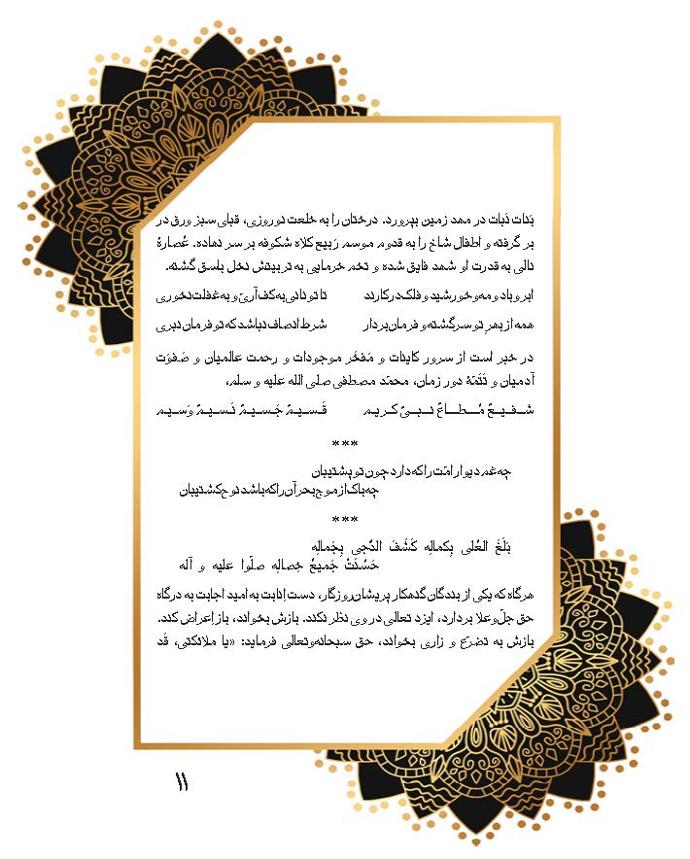 بَنات نَبات در مهد زمین بپرورد. درختان را به خلعت نوروزی، قبای سبز ورق در
بر گرفته و اطفال شاخ را به قدوم موسم رَبیع کلاه شکوفه بر سر نهاده. عُصارهٔ
نالی به قدرت او شهد فایق شده و تخم خرمایی به تربیتش نخل باسق گشته.
ابر و باد و مه و خورشید و فلک در کارند تا تو نانی به کف آریّ و به غفلت نخوری
همه از بهرِ تو سرگشته و فرمان‌بردار شرط انصاف نباشد که تو فرمان نبری
در خبر است از سرور کاینات و مَفخر موجودات و رحمت عالمیان و صَفوَت
آدمیان و تَتَمّهٔ دور زمان، محمّد مصطفی صلی الله علیه و سلم،
شَـفـیـعٌ مُـطـاعٌ نَـبـیٌ کـریـم قَـسـیـمٌ جَسـیـمٌ نَسـیـمٌ وَسـیـم
***
چه غم دیوار امّت را که دارد چون تو پشتیبان
چه باک از موج بحر آن را که باشد نوح کشتیبان
***
بَلَغَ العُلی بِکمالِه کَشَفَ الدُّجی بِجَمالِه
حَسُنَتْ جَمیعُ خِصالِه صلّوا علیه و آله
هرگاه که یکی از بندگان گنهکار پریشان‌روزگار، دست اِنابت به امید اجابت به درگاه
حق جلّ‌وعلا بردارد، ایزد تعالی در وی نظر نکند. بازش بخواند، باز اِعراض کند.
بازش به تضرّع و زاری بخواند، حق سبحانه‌وتعالی فرماید: «یا ملائکتی، قَد
۱۱